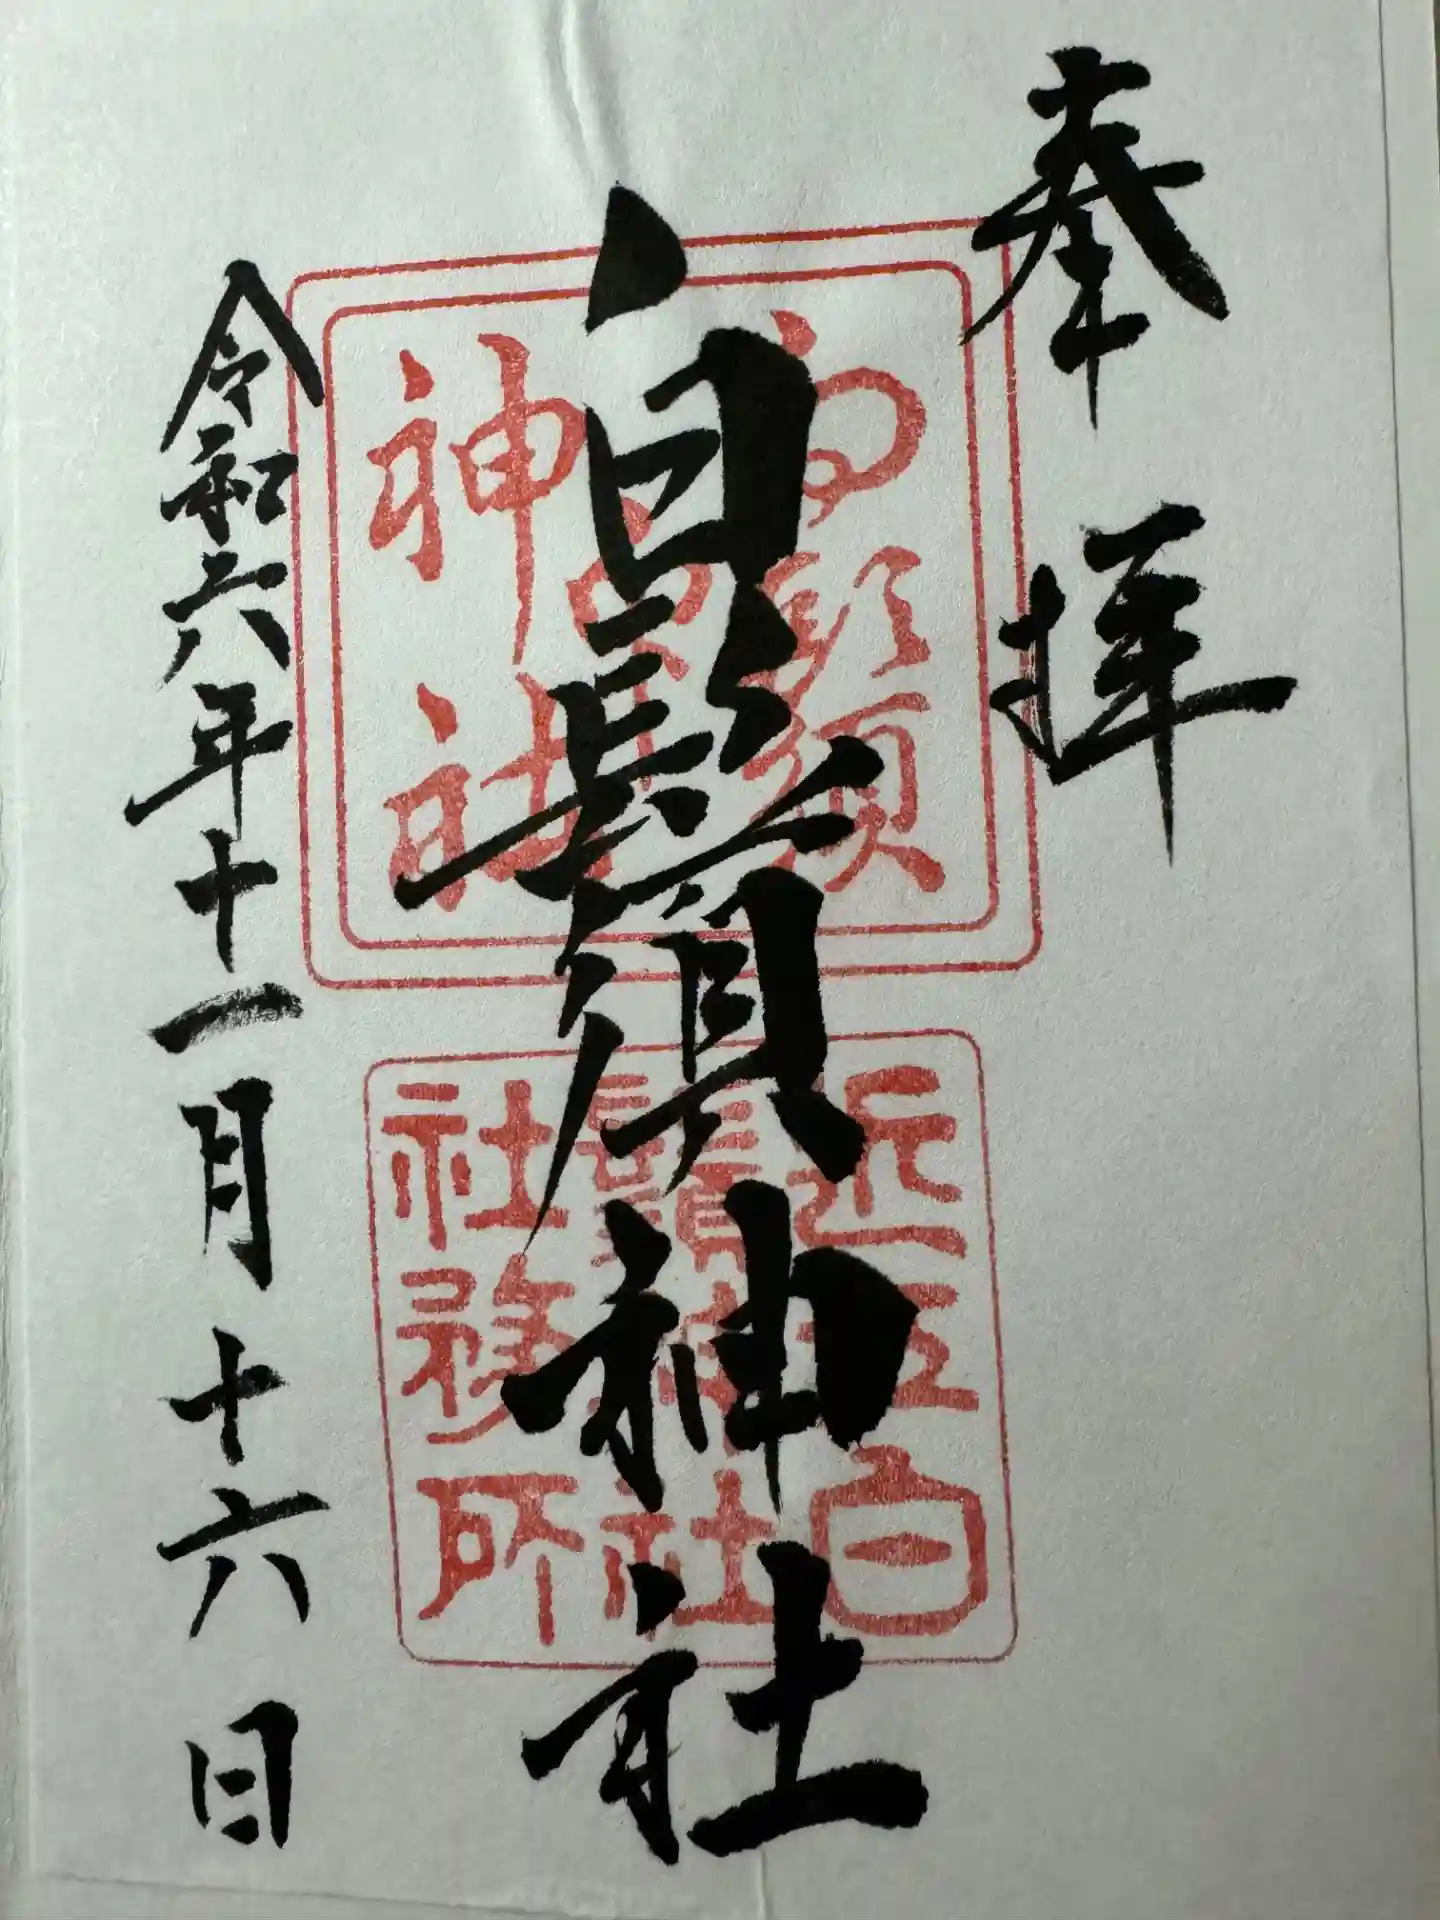 奉拝
白鬚神社
令和六年十一月十六日
近江白
鬚神社
社務所